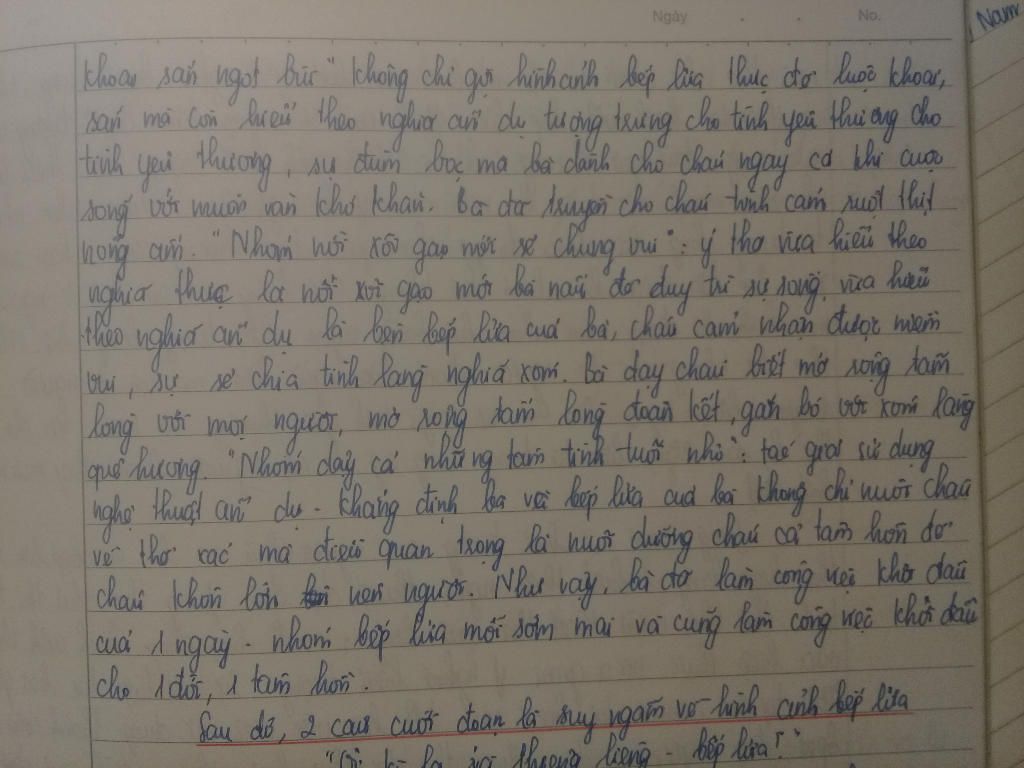 Ngày . . No.
Nam
khoai sắn ngọt bùi" không chỉ gợi hình ảnh bếp lửa thực để luộc khoai,
sắn mà còn hiểu theo nghĩa ẩn dụ tượng trưng cho tình yêu thương cho
tình yêu thương, sự đùm bọc mà bà dành cho cháu ngay cả khi cuộc
sống với muôn vàn khó khăn. Bà đã truyền cho cháu tình cảm ruột thịt
nồng ấm. "Nhóm nồi xôi gạo mới sẻ chung vui": ý thơ vừa hiểu theo
nghĩa thực là nồi xôi gạo mới bà nấu để duy trì sự sống, vừa hiểu
theo nghĩa ẩn dụ là bên bếp lửa của bà, cháu cảm nhận được niềm
vui, sự sẻ chia tình làng nghĩa xóm. Bà dạy cháu biết mở rộng tấm
lòng với mọi người, mở rộng tấm lòng đoàn kết, gắn bó với xóm làng
quê hương. "Nhóm dậy cả những tâm tình tuổi nhỏ": tác giả sử dụng
nghệ thuật ẩn dụ - khẳng định bà và bếp lửa của bà không chỉ nuôi cháu
về thể xác mà điều quan trọng là nuôi dưỡng cháu cả tâm hồn để
cháu khôn lớn nên người. Như vậy, bà đã làm công việc khởi đầu
của 1 ngày - nhóm bếp lửa mỗi sớm mai và cũng làm công việc khởi đầu
cho 1 đời, 1 tâm hồn.
Sau đó, 2 câu cuối đoạn là suy ngẫm về hình ảnh bếp lửa
"Ôi kì lạ và thiêng liêng - bếp lửa!"